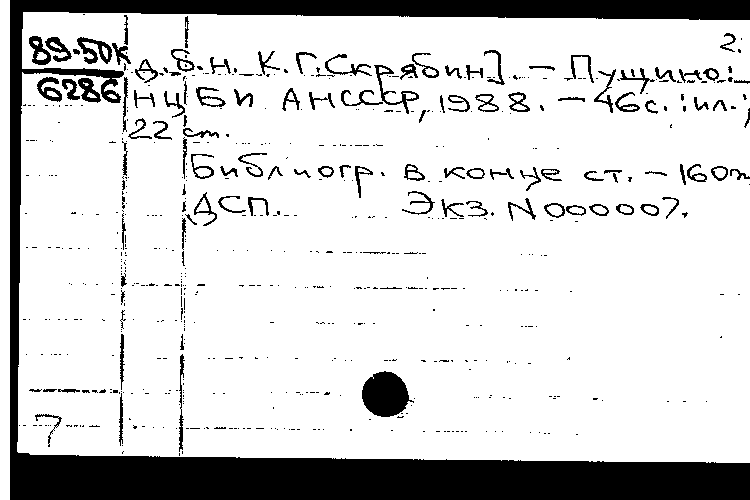 2.
89-50к
6286
д.б.н. К.Г.Скрябин]. – Пущино:
НЦ БИ АНСССР, 1988. – 46с. : ил.;
22 см.
Библиогр. в конце ст. – 160
ДСП. Экз. N 000007.
7